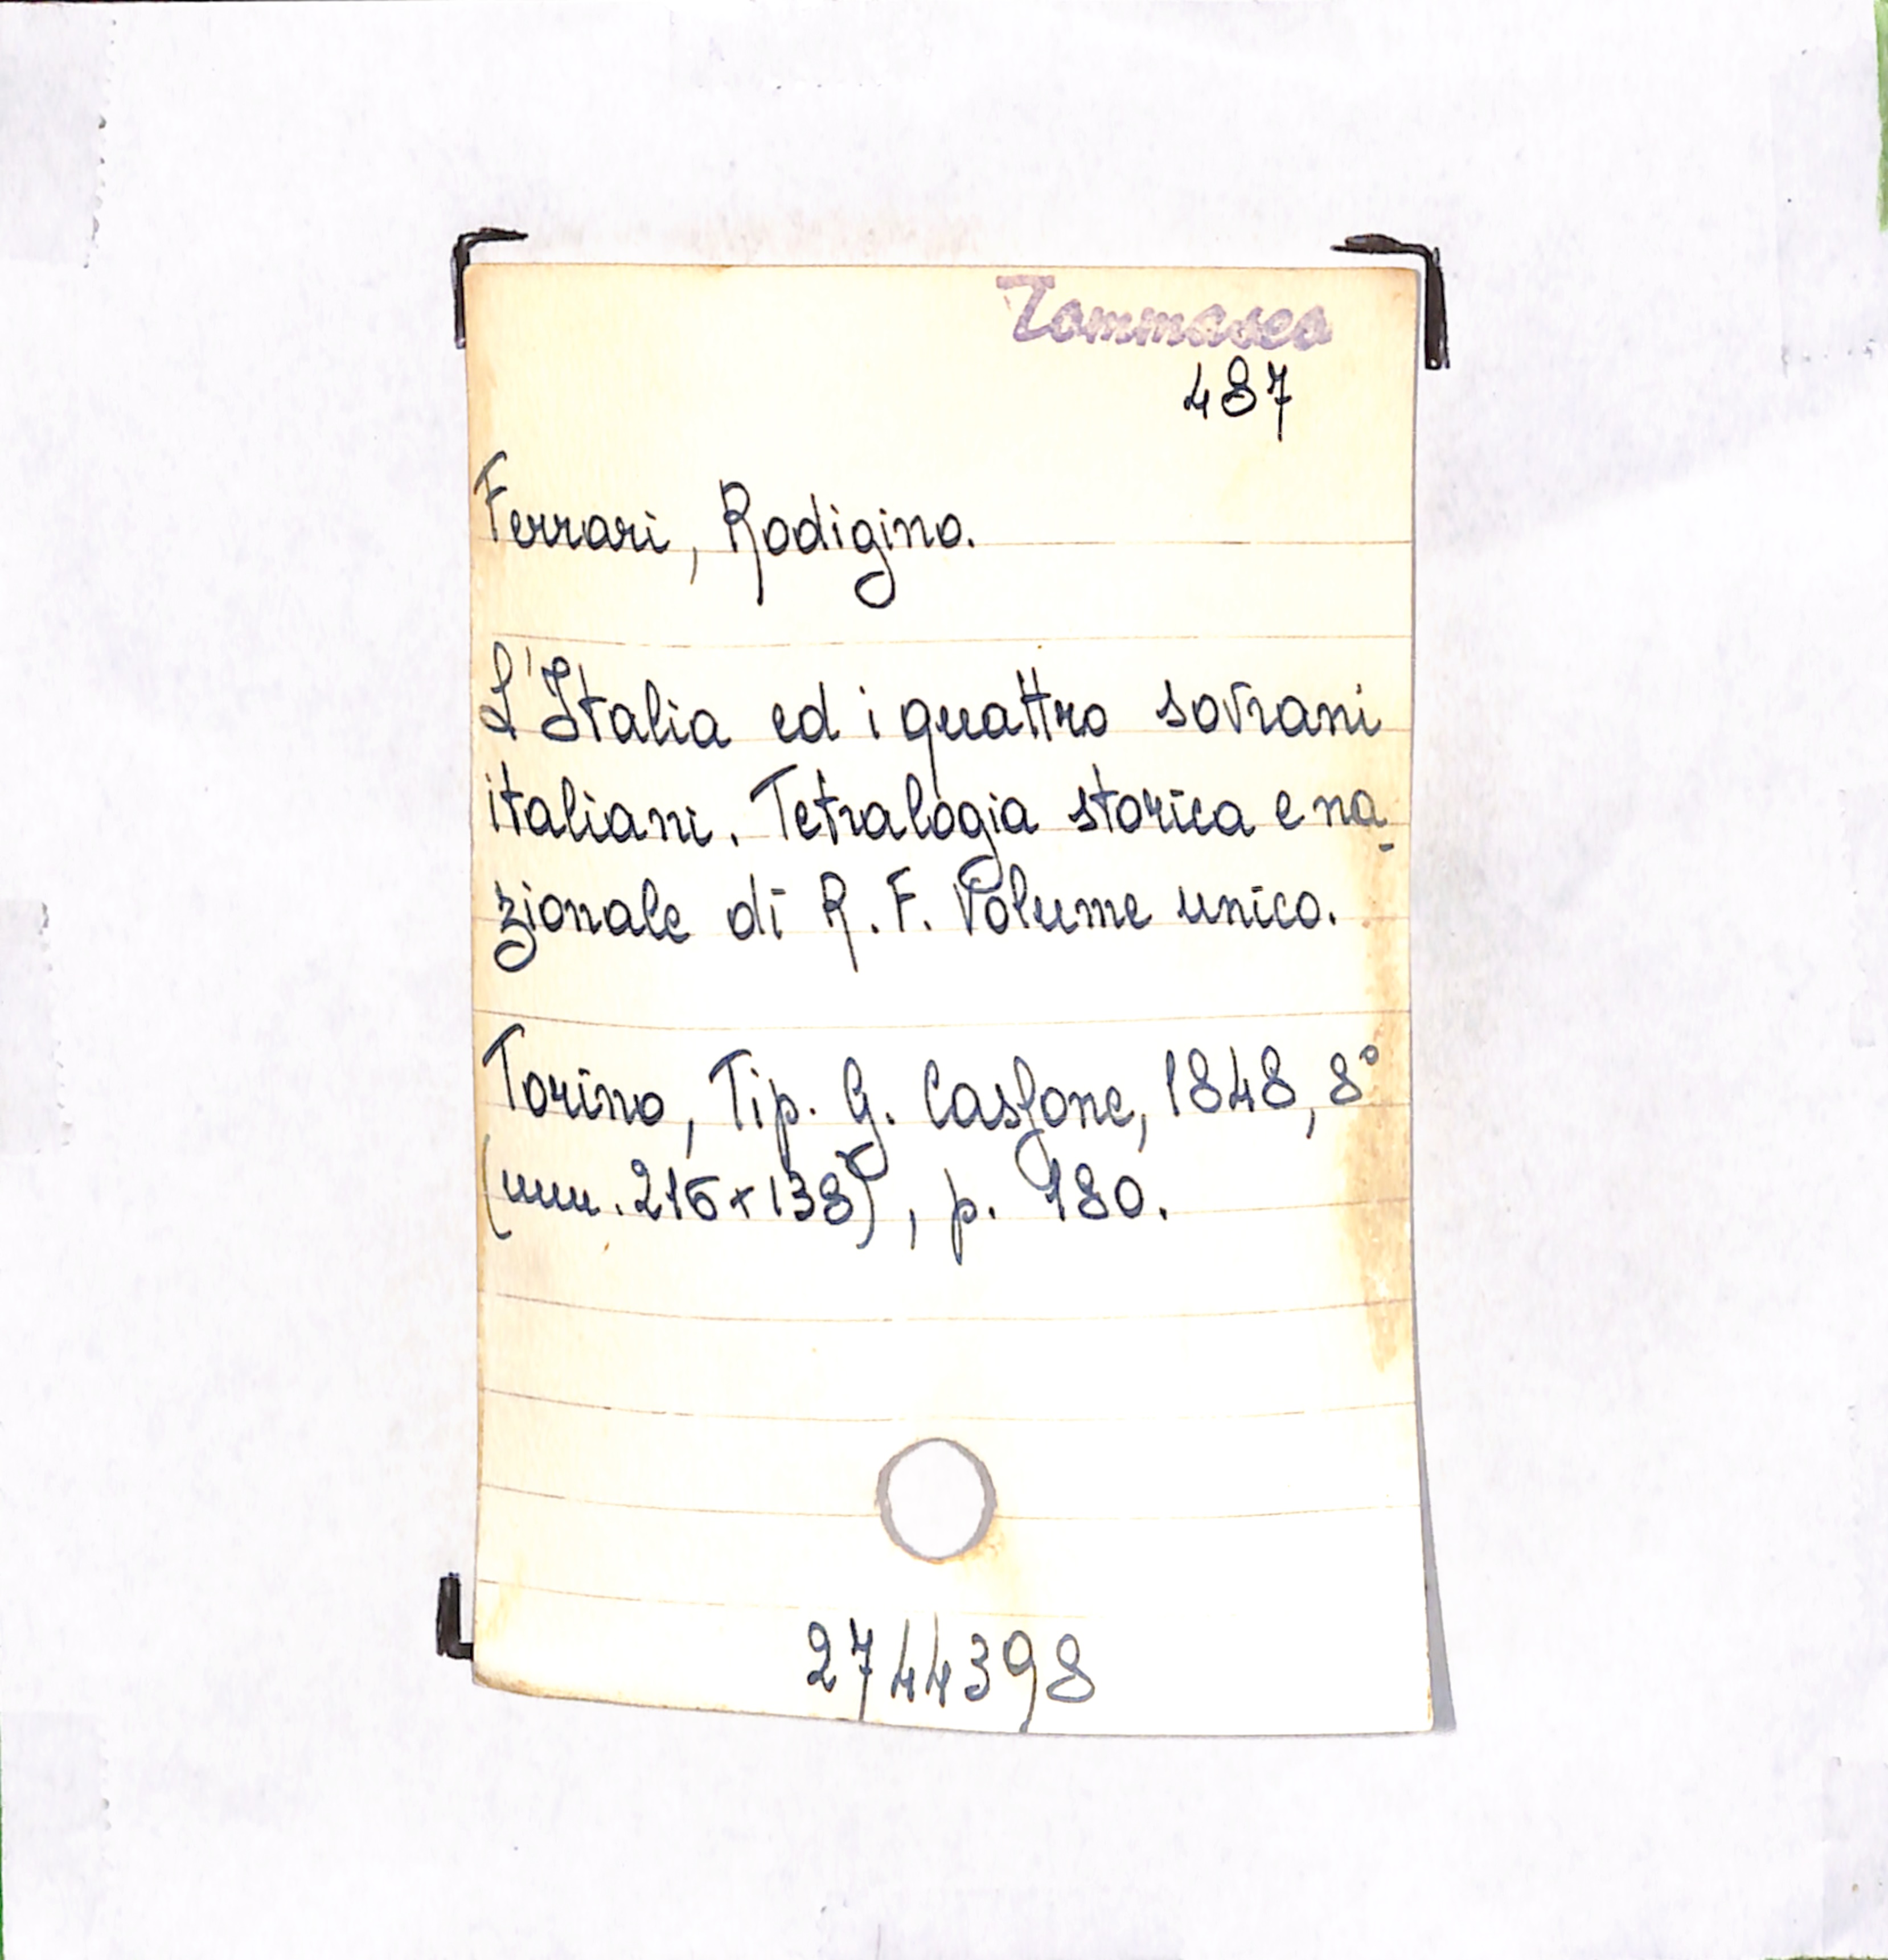 Tommaseo
487
Ferrari, Rodigino.
L'Italia ed i quattro sovrani
italiani. Tetralogia storica e na-
zionale di R. F. Volume unico.
Torino, Tip. G. Casfone, 1848, 8°
(mm. 216 x 138), p. 180.
2744398